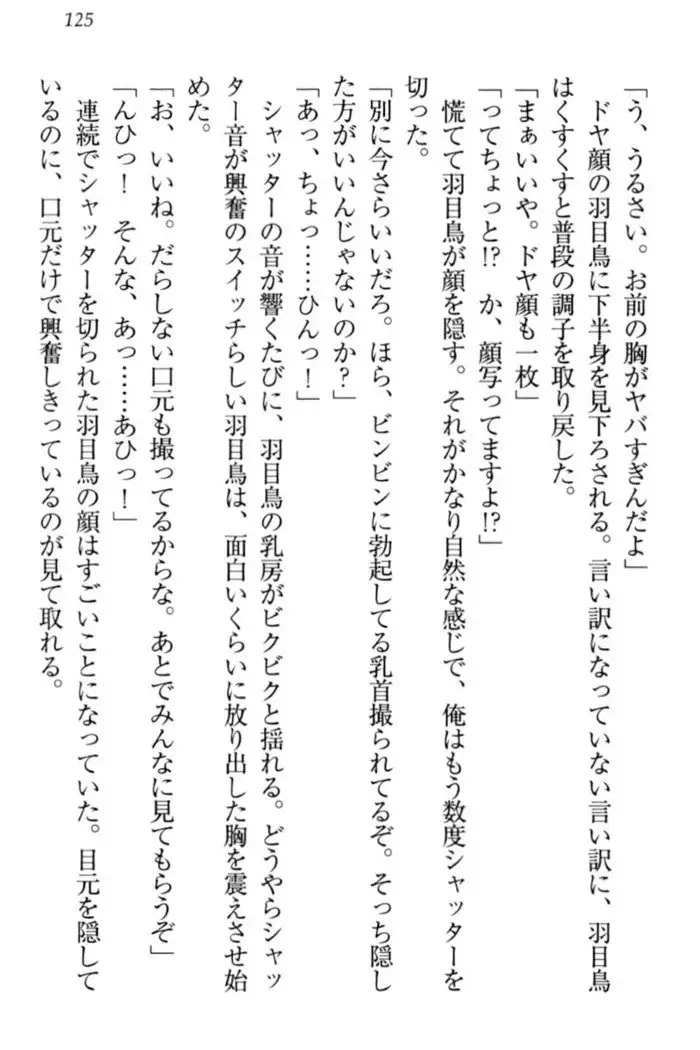 125
「う、うるさい。お前の胸がヤバすぎんだよ」
ドヤ顔の羽目鳥に下半身を見下ろされる。言い訳になっていない言い訳に、羽目鳥
はくすくすと普段の調子を取り戻した。
「まぁいいや。ドヤ顔も一枚」
「ってちょっと!?　か、顔写ってますよ!?」
慌てて羽目鳥が顔を隠す。それがかなり自然な感じで、俺はもう数度シャッターを
切った。
「別に今さらいいだろ。ほら、ビンビンに勃起してる乳首撮られてるぞ。そっち隠し
た方がいいんじゃないのか?」
「あっ、ちょっ……ひんっ!」
シャッターの音が響くたびに、羽目鳥の乳房がビクビクと揺れる。どうやらシャッ
ター音が興奮のスイッチらしい羽目鳥は、面白いくらいに放り出した胸を震えさせ始
めた。
「お、いいね。だらしない口元も撮ってるからな。あとでみんなに見てもらうぞ」
「んひっ!　そんな、あっ……あひっ!」
連続でシャッターを切られた羽目鳥の顔はすごいことになっていた。目元を隠して
いるのに、口元だけで興奮しきっているのが見て取れる。